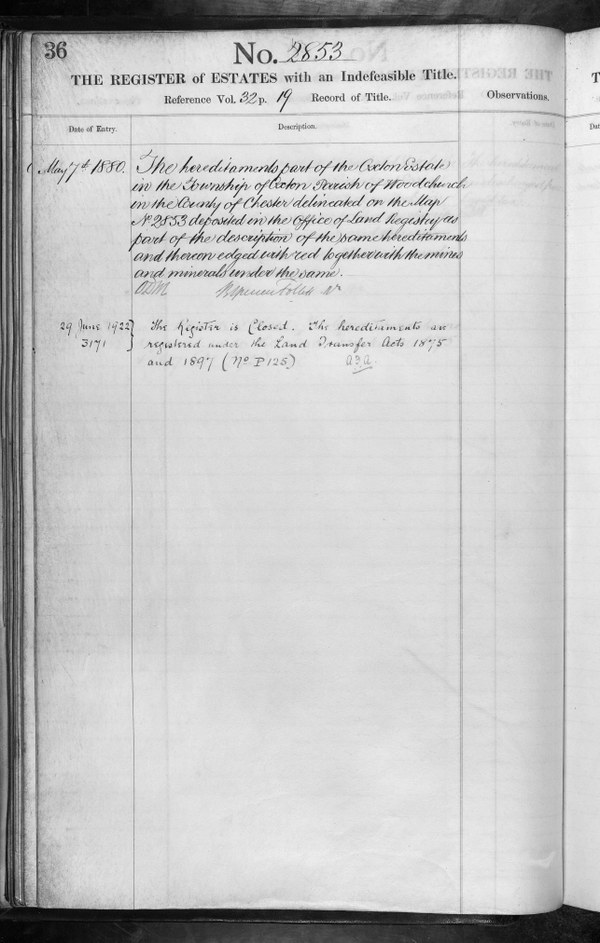 36
No. 2853
THE REGISTER of ESTATES with an Indefeasible Title.
Reference Vol. 32 p. 19 Record of Title. Observations.
Date of Entry. Description.
May 7th 1880. The hereditaments part of the Oxton Estate
in the Township of Oxton Parish of Woodchurch
in the County of Chester delineated on the Map
No 2853 deposited in the Office of Land Registry as
part of the description of the same hereditaments
and thereon edged with red together with the mines
and minerals under the same.
29 June 1922 } The Register is Closed. The hereditaments are
3171 } registered under the Land Transfer Acts 1875
and 1897 (No P125)